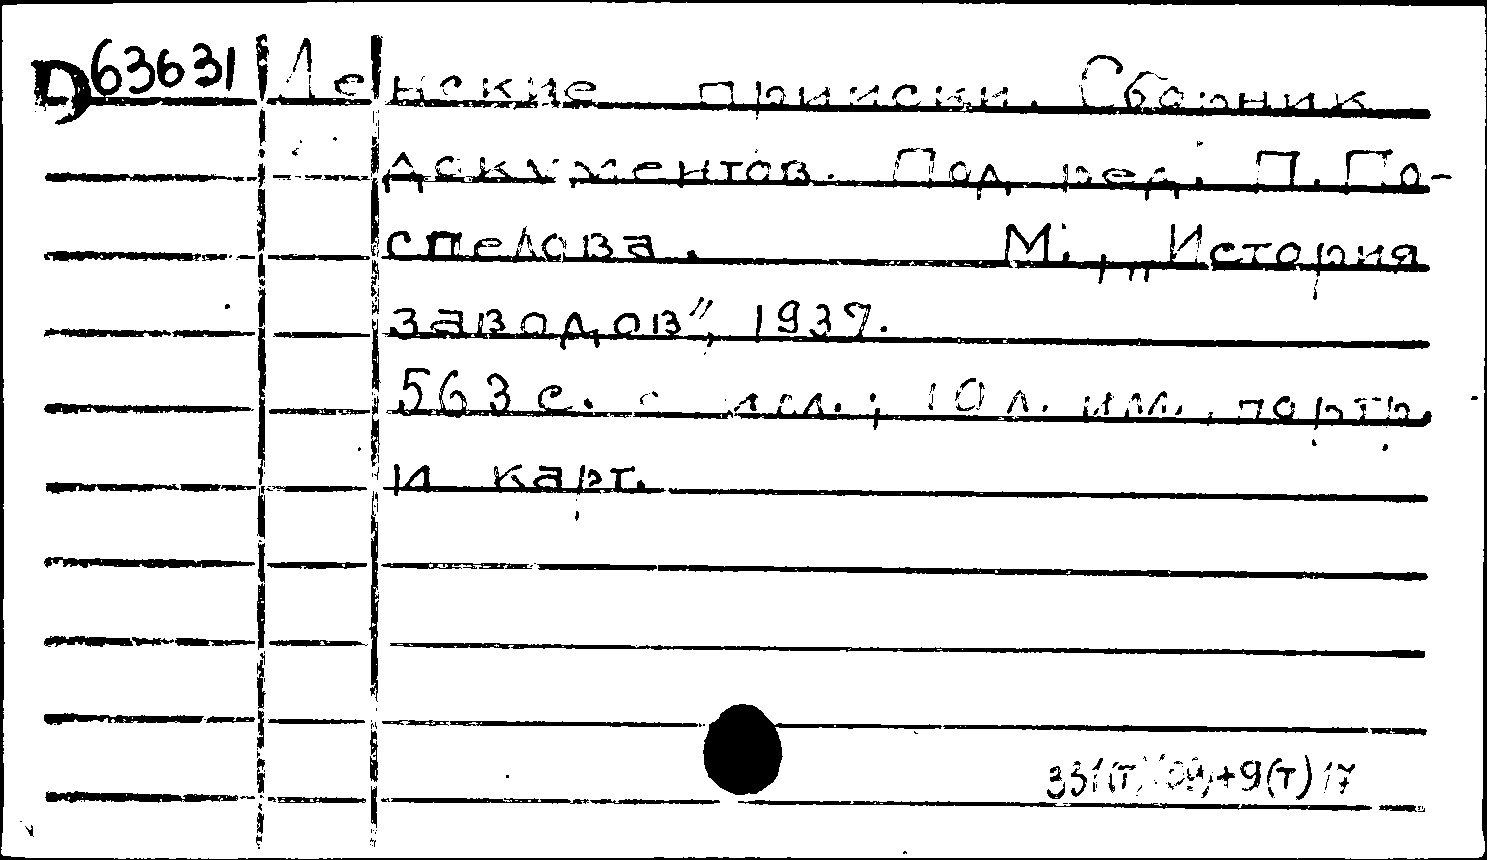 D63631 Ленские прииски. Сборник
документов. Под ред. П. По-
спелова. М., „История
заводов", 1937.
563 с. с илл.; 10 л. илл., портр.
и карт.
331(т)(09)+9(т)17